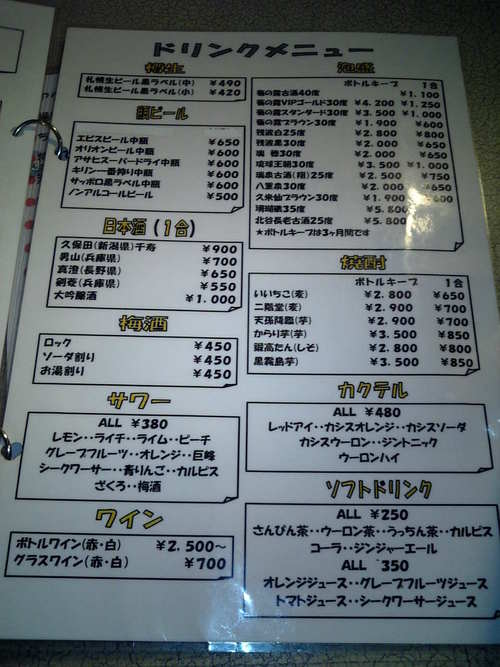 ドリンクメニュー
樽生
札幌生ビール黒ラベル(中) ￥490
札幌生ビール黒ラベル(小) ￥420
ビール
エビスビール中瓶 ￥650
オリオンビール中瓶 ￥600
アサヒスーパードライ中瓶 ￥600
キリン一番搾り中瓶 ￥600
サッポロ黒ラベル中瓶 ￥600
ノンアルコールビール ￥500
日本酒(1合)
久保田(新潟県)千寿 ￥900
男山(兵庫県) ￥700
真澄(長野県) ￥650
剣菱(兵庫県) ￥550
大吟醸酒 ￥1.000
梅酒
ロック ￥450
ソーダ割り ￥450
お湯割り ￥450
サワー
ALL ￥380
レモン・・ライチ・・ライム・・ピーチ
グレープフルーツ・・オレンジ・・巨峰
シークワーサー・・青りんご・・カルピス
ざくろ・・梅酒
ワイン
ボトルワイン(赤・白) ￥2.500～
グラスワイン(赤・白) ￥700
泡盛
ボトルキープ 1合
菊の露古酒40度 ￥1.100
菊の露VIPゴールド30度 ￥4.200 ￥1.250
菊の露スタンダード30度 ￥3.500 ￥1.000
菊の露ブラウン30度 ￥1.900 ￥600
残波白25度 ￥2.800 ￥800
残波黒30度 ￥2.000 ￥650
瑞穂30度 ￥2.000 ￥650
琉球王朝30度 ￥3.500 ￥1.000
瑞泉古酒(翔)25度 ￥2.500 ￥750
八重泉30度 ￥2.000 ￥650
久米仙ブラウン30度 ￥1.900 ￥600
珊瑚礁35度 ￥5.800
北谷長老古酒25度 ￥5.800
★ボトルキープは3ヶ月間です
焼酎
ボトルキープ 1合
いいちこ(麦) ￥2.800 ￥650
二階堂(麦) ￥2.900 ￥700
天孫降臨(芋) ￥2.900 ￥700
からり芋(芋) ￥3.500 ￥850
鍛高たん(しそ) ￥2.800 ￥800
黒霧島芋) ￥3.500 ￥850
カクテル
ALL ￥480
レッドアイ・・カシスオレンジ・・カシスソーダ
カシスウーロン・・ジントニック
ウーロンハイ
ソフトドリンク
ALL ￥250
さんぴん茶・・ウーロン茶・・うっちん茶・・カルピス
コーラ・・ジンジャーエール
ALL ￥350
オレンジジュース・・グレープフルーツジュース
トマトジュース・・シークワサージュース